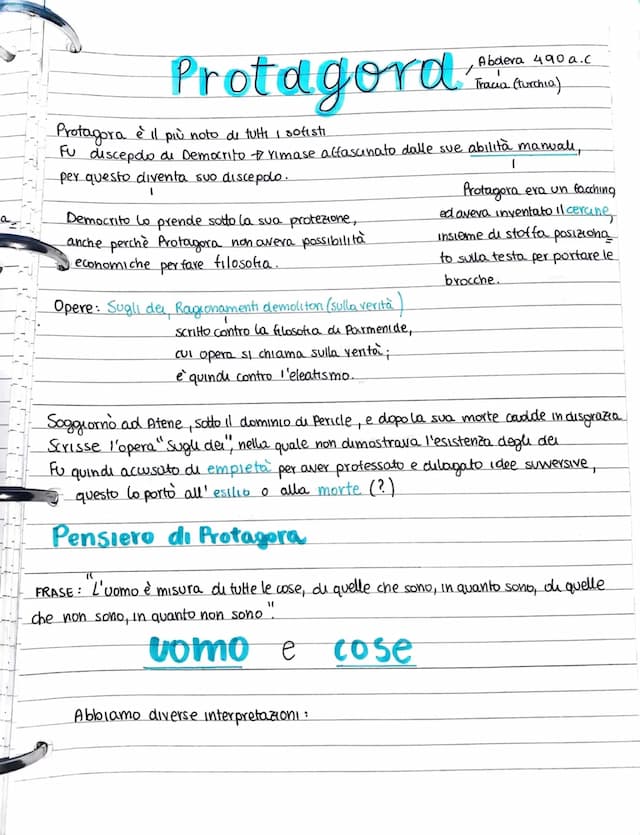 Protagora, Abdera 490 a.c
Tracia (turchia)
Protagora è il più noto di tutti i sofisti
Fu discepolo di Democrito → rimase affascinato dalle sue abilità manuali,
per questo diventa suo discepolo.
Protagora era un facching
ed aveva inventato il cercine,
insieme di stoffa posiziona
to sulla testa per portare le
brocche.
a
Democrito lo prende sotto la sua protezione,
anche perchè Protagora non aveva possibilità
economiche per fare filosofia.
Opere: Sugli dei, Ragionamenti demolitori (sulla verità)
scritto contro la filosofia di Parmenide,
cui opera si chiama sulla verità;
e' quindi contro l'eleatismo.
Soggiornò ad Atene, sotto il dominio di Pericle, e dopo la sua morte cadde in disgrazia
Scrisse l'opera "sugli dei", nella quale non dimostrava l'esistenza degli dei
Fu quindi accusato di empietà per aver professato e dilagato idee suvversive,
questo lo portò all'esilio o alla morte (?)
Pensiero di Protagora
FRASE: "L'uomo è misura di tutte le cose, di quelle che sono, in quanto sono, di quelle
che non sono, in quanto non sono".
uomo e cose
Abbiamo diverse interpretazioni: